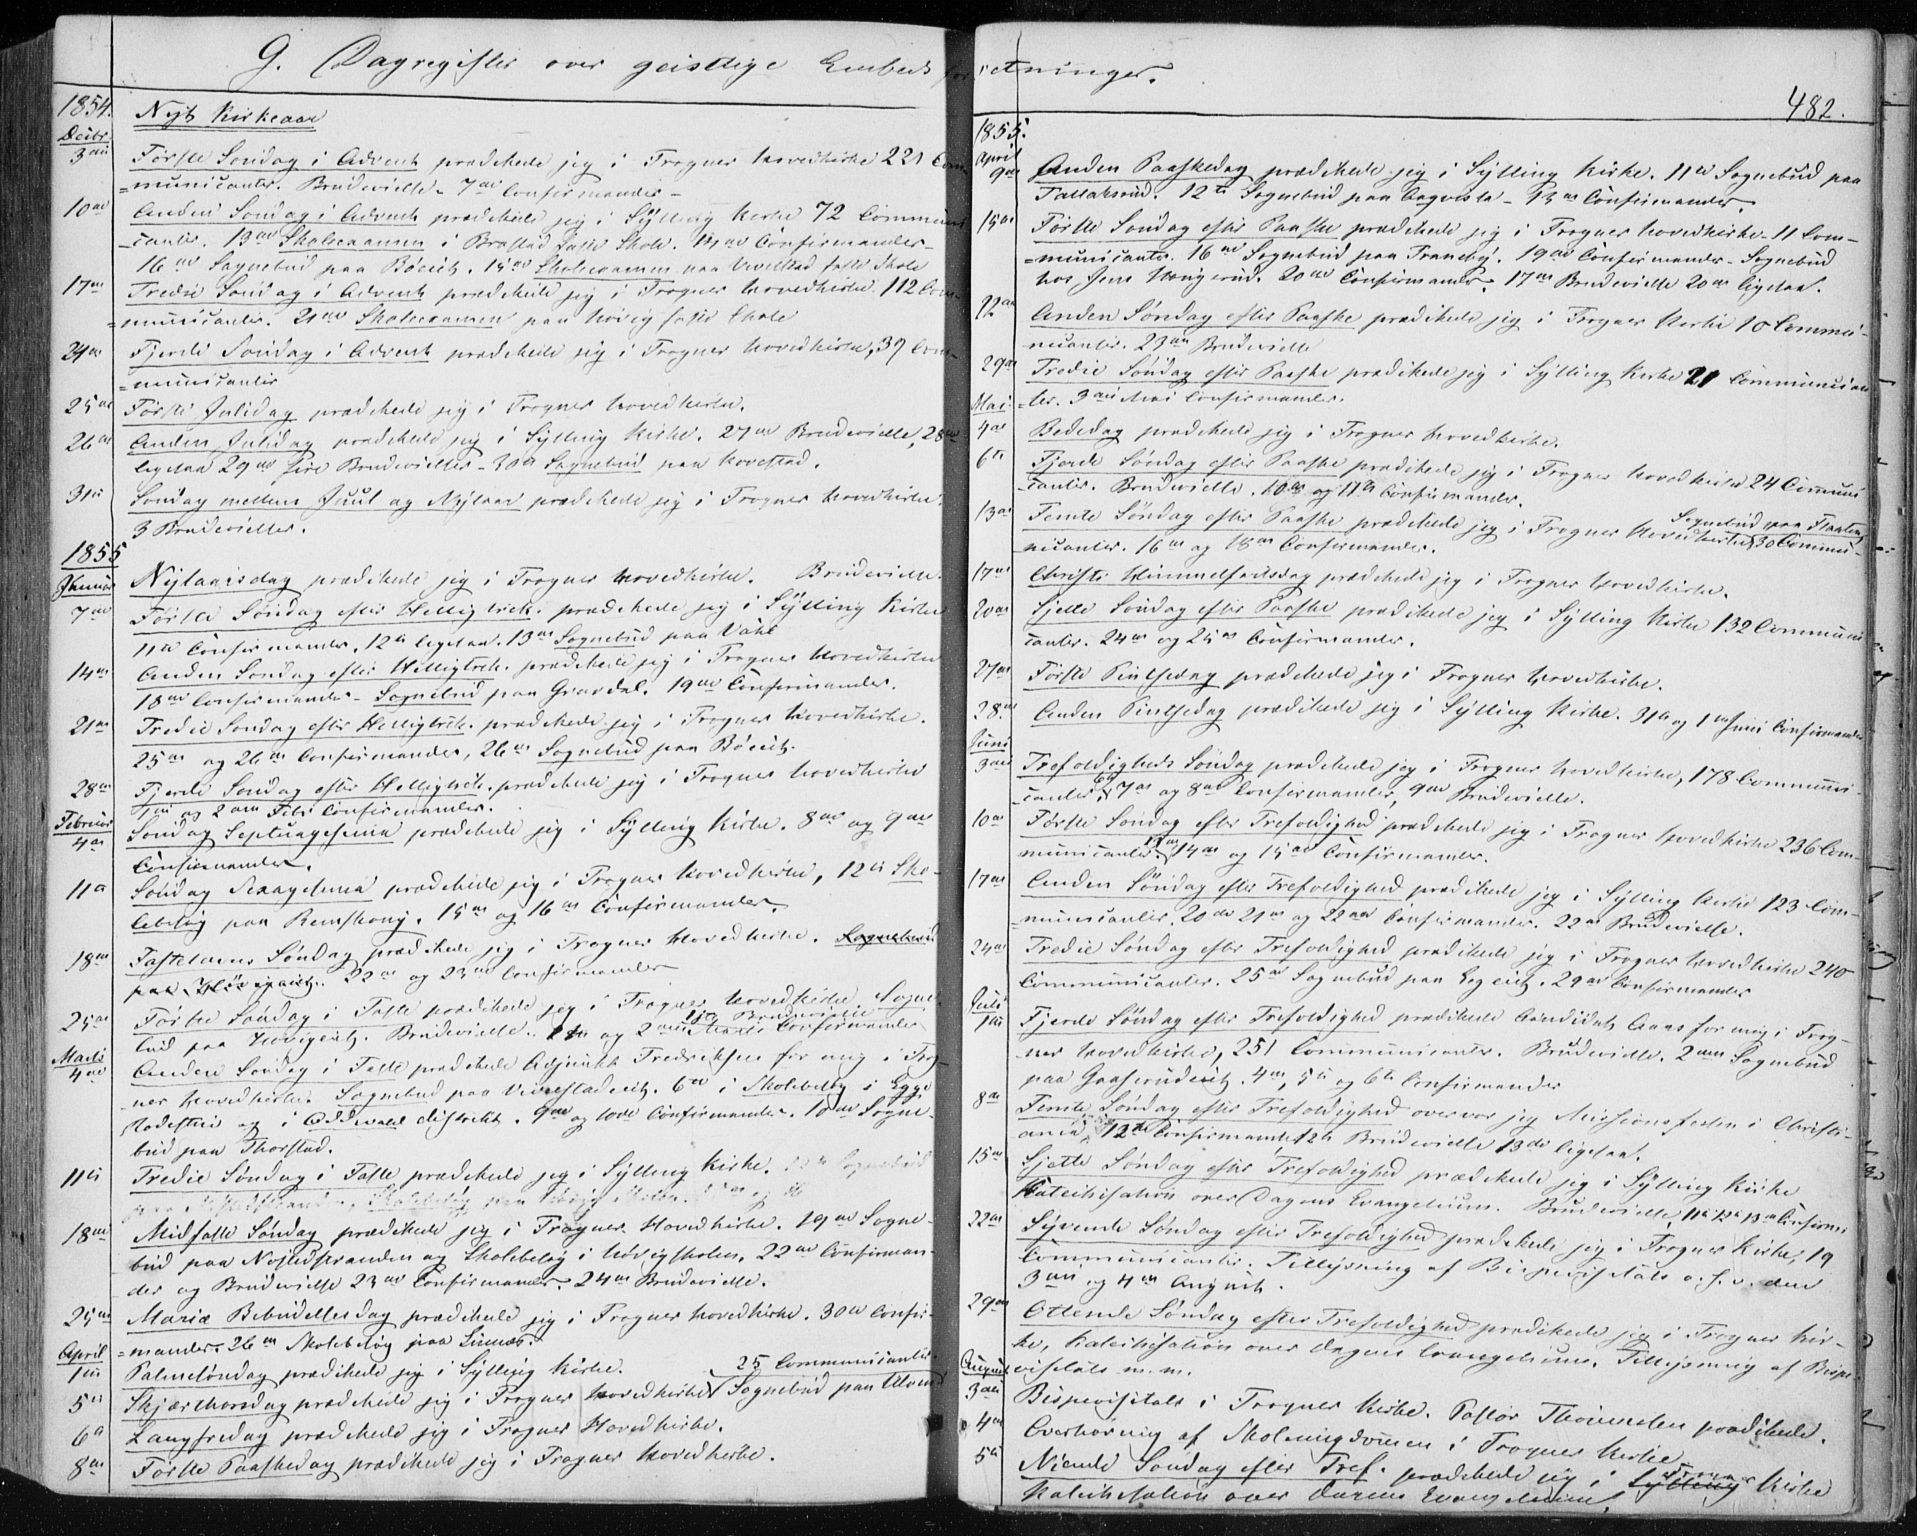 G. Dagregister over geistlige Embedsforretninger.
482.
1854.
Decbr.
Nyt Kirkeaar
3die Første Søndag i Advent prædikede jeg i Frogner Hovedkirke 221 Com-
=municanter. Brudevielse. 7de Confirmander.
10de Anden Søndag i Advent prædikede jeg i Sylling Kirke 72 Communi-
-canter. 13de Skoleexamen i faste Skole. Confirmander.
16de Sognebud paa 15de Skoleexamen paa faste Skole
17de Tredie Søndag i Advent prædikede jeg i Frogner Hovedkirke. 112 Com-
=municanter. 21de Skoleexamen paa faste Skole
24de Fjerde Søndag i Advent prædikede jeg i Frogner Hovedkirke, 39 Com-
=municanter
25de Første Juledag prædikede jeg i Frogner Hovedkirke.
26de Anden Juledag prædikede jeg i Sylling Kirke. 27de Brudevielse, 28de
ligesaa 29de fire Brudevielser - 30te Sognebud paa Hovestad.
31te Søndag mellem Juul og Nytaar prædikede jeg i Frogner Hovedkirke.
3 Brudevielser.
1855
Januar Nytaarsdag prædikede jeg i Frogner Hovedkirke. Brudevielse.
7de Første Søndag efter Helligtrek. prædikede jeg i Sylling Kirke
11te Confirmander, 12te ligesaa. 13de Sognebud paa
14de Anden Søndag efter Helligtrek. prædikede jeg i Frogner Hovedkirke
18de Confirmander - Sognebud paa Gravdal. 19de Confirmander.
21de Tredie Søndag efter Helligtrek. prædikede jeg i Frogner Hovedkirke.
25de og 26de Confirmander, 26de Sognebud paa
28de Fjerde Søndag efter Helligtrek. prædikede jeg i Frogner Hovedkirke
1ste og 2den Febr. Confirmander.
Februar
4de Søndag Septuagesima prædikede jeg i Sylling Kirke. 8de og 9de
Confirmander.
11te Søndag Sexagesima prædikede jeg i Frogner Hovedkirke, 12te Sko-
lebesøg paa Renskoug. 15de og 16de Confirmander.
18de Fastelavns Søndag prædikede jeg i Frogner Hovedkirke. Sognebud
paa 22de og 23de Confirmander
25de Første Søndag i Faste prædikede jeg i Frogner Hovedkirke. Sogne-
bud paa Brudevielse. 1ste og 2den Marts Confirmander
Marts
4de Anden Søndag i Faste prædikede Adjunkt Fredriksen for mig i Frog-
ner Hovedkirke. Sognebud paa 6te i Skolebesøg i Egge
Rodestue og i Oddevald District. 9de og 10de Confirmander. 10de Sogne-
bud paa Thorstad.
11te Tredie Søndag i Faste prædikede jeg i Sylling Kirke.
18de Midfaste Søndag prædikede jeg i Frogner Hovedkirke. 19de Sogne-
bud paa Nøstedstranden og Skolebesøg i Høvigskolen, 22de Confirman-
der og Brudevielse 23de Confirmander. 24de Brudevielse.
25de Mariæ Bebudelsesdag prædikede jeg i Frogner Hovedkirke. 30te Confir-
=mander. 26de Skolebesøg paa
April
1ste Palmesøndag prædikede jeg i Sylling Kirke. 25 Communicanter.
5te Skjærthorsdag prædikede jeg i Frogner Hovedkirke Sognebud paa
6te Langfredag prædikede jeg i Frogner Hovedkirke.
8de Første Paaskedag prædikede jeg i Frogner Hovedkirke.
1855.
April
9de Anden Paaskedag prædikede jeg i Sylling Kirke. 11te Sognebud paa
Tallaksrud. 12te Sognebud paa 13de Confirmander.
15de Første Søndag efter Paaske prædikede jeg i Frogner Hovedkirke. 11 Com-
=municanter. 16de Sognebud paa Traneby. 19de Confirmander - Sognebud
hos Jens 20de Confirmander. 17de Brudevielse 20de ligesaa.
22de Anden Søndag efter Paaske prædikede jeg i Frogner Kirke 10 Commu-
nicanter. 23de Brudevielse
29de Tredie Søndag efter Paaske prædikede jeg i Sylling Kirke 21 Communican-
ter. 3die Mai Confirmander.
Mai.
4de Bededag prædikede jeg i Frogner Hovedkirke.
6te Fjerde Søndag efter Paaske prædikede jeg i Frogner Hovedkirke 24 Communi
canter. Brudevielse. 10de og 11te Confirmander.
13de Femte Søndag efter Paaske prædikede jeg i Frogner Hovedkirke 30 Commu-
Sognebud paa Flaaten
nicanter. 16de og 18de Confirmander.
17de Christi Himmelfartsdag prædikede jeg i Frogner Hovedkirke.
20de Sjette Søndag efter Paaske prædikede jeg i Sylling Kirke 132 Communi
canter. 24de og 25de Confirmander.
27de Første Pintsedag prædikede jeg i Frogner Hovedkirke.
28de Anden Pintsedag prædikede jeg i Sylling Kirke. 31te og 1ste Juni Confirmander
Juni
3die Trefoldigheds Søndag prædikede jeg i Frogner Hovedkirke, 178 Communi-
canter, 6te 7de og 8de Confirmander, 9de Brudevielse.
10de Første Søndag efter Trefoldighed prædikede jeg i Frogner Hovedkirke 236 Com-
municanter. 14de og 15de Confirmander.
17de Anden Søndag efter Trefoldighed prædikede jeg i Sylling Kirke 123 Com-
municanter. 20de 21de og 22de Confirmander. 22de Brudevielse.
24de Tredie Søndag efter Trefoldighed prædikede jeg i Frogner Hovedkirke 240
Communicanter. 25de Sognebud paa 29de Confirmander
Juli
1ste Fjerde Søndag efter Trefoldighed prædikede Candidat Aars for mig i Frog-
ner Hovedkirke, 251 Communicanter. Brudevielse. 2den Sognebud
paa Gaaserudeiet. 4de, 5te og 6te Confirmander
8de Femte Søndag efter Trefoldighed overvar jeg Missionsfesten i Christi-
ania, 12te Confirmander, 12te Brudevielse 13de ligesaa.
15de Sjette Søndag efter Trefoldighed prædikede jeg i Sylling Kirke
Katechisation over Dagens Evangelium. Brudevielse, 11te 12te 13de Confirm:
22de Syvende Søndag efter Trefoldighed prædikede jeg i Frogner Kirke, 19
Communicanter. Tillysning af Bispevisitats o.s.v. den
3die og 4de August.
29de Ottende Søndag efter Trefoldighed prædikede jeg i Frogner Kir-
ke, Katechisation over Dagens Evangelium. Tillysning af Bispe-
visitats m.m.
August
3die Bispevisitats i Frogner Kirke. Pastor Thomesen prædikede.
4de Overhøring af Skoleungdommen i Frogner Kirke
5te Niende Søndag efter Tref. prædikede jeg i Sylling Frogner Kirke
Katechisation over Dagens Evangelium.